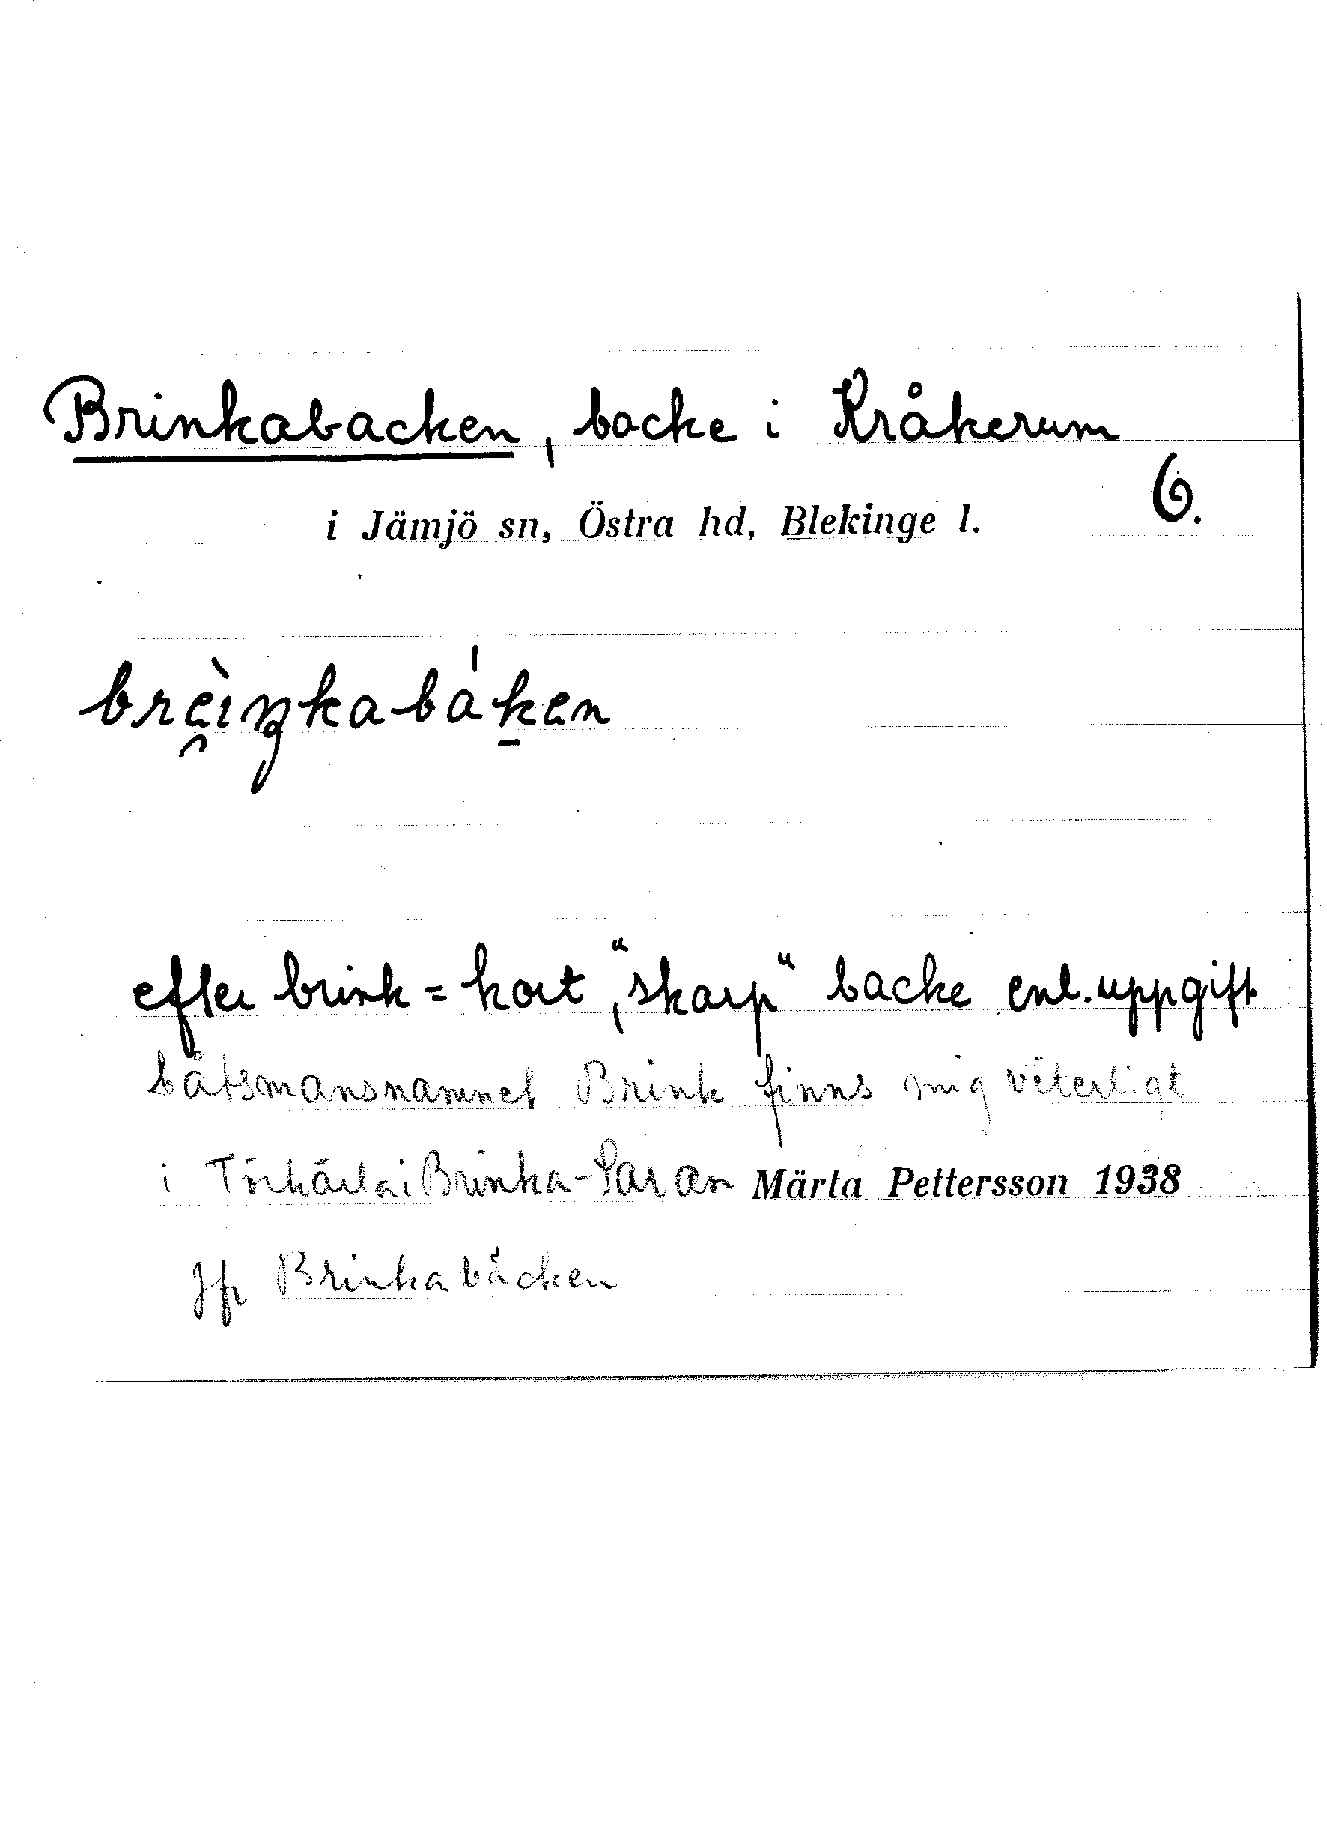 Brinkabacken, backe i Kråkerum
6.
i Jämjö sn, Östra hd, Blekinge l.
brèiŋkabák̠en
efter brink = kort, "skarp" backe enl. uppgift
båtsmansnamnet Brink finns mig veterligt
i Torhärla i Brinka-Saran Märta Pettersson 1938
Jfr Brinkabäcken